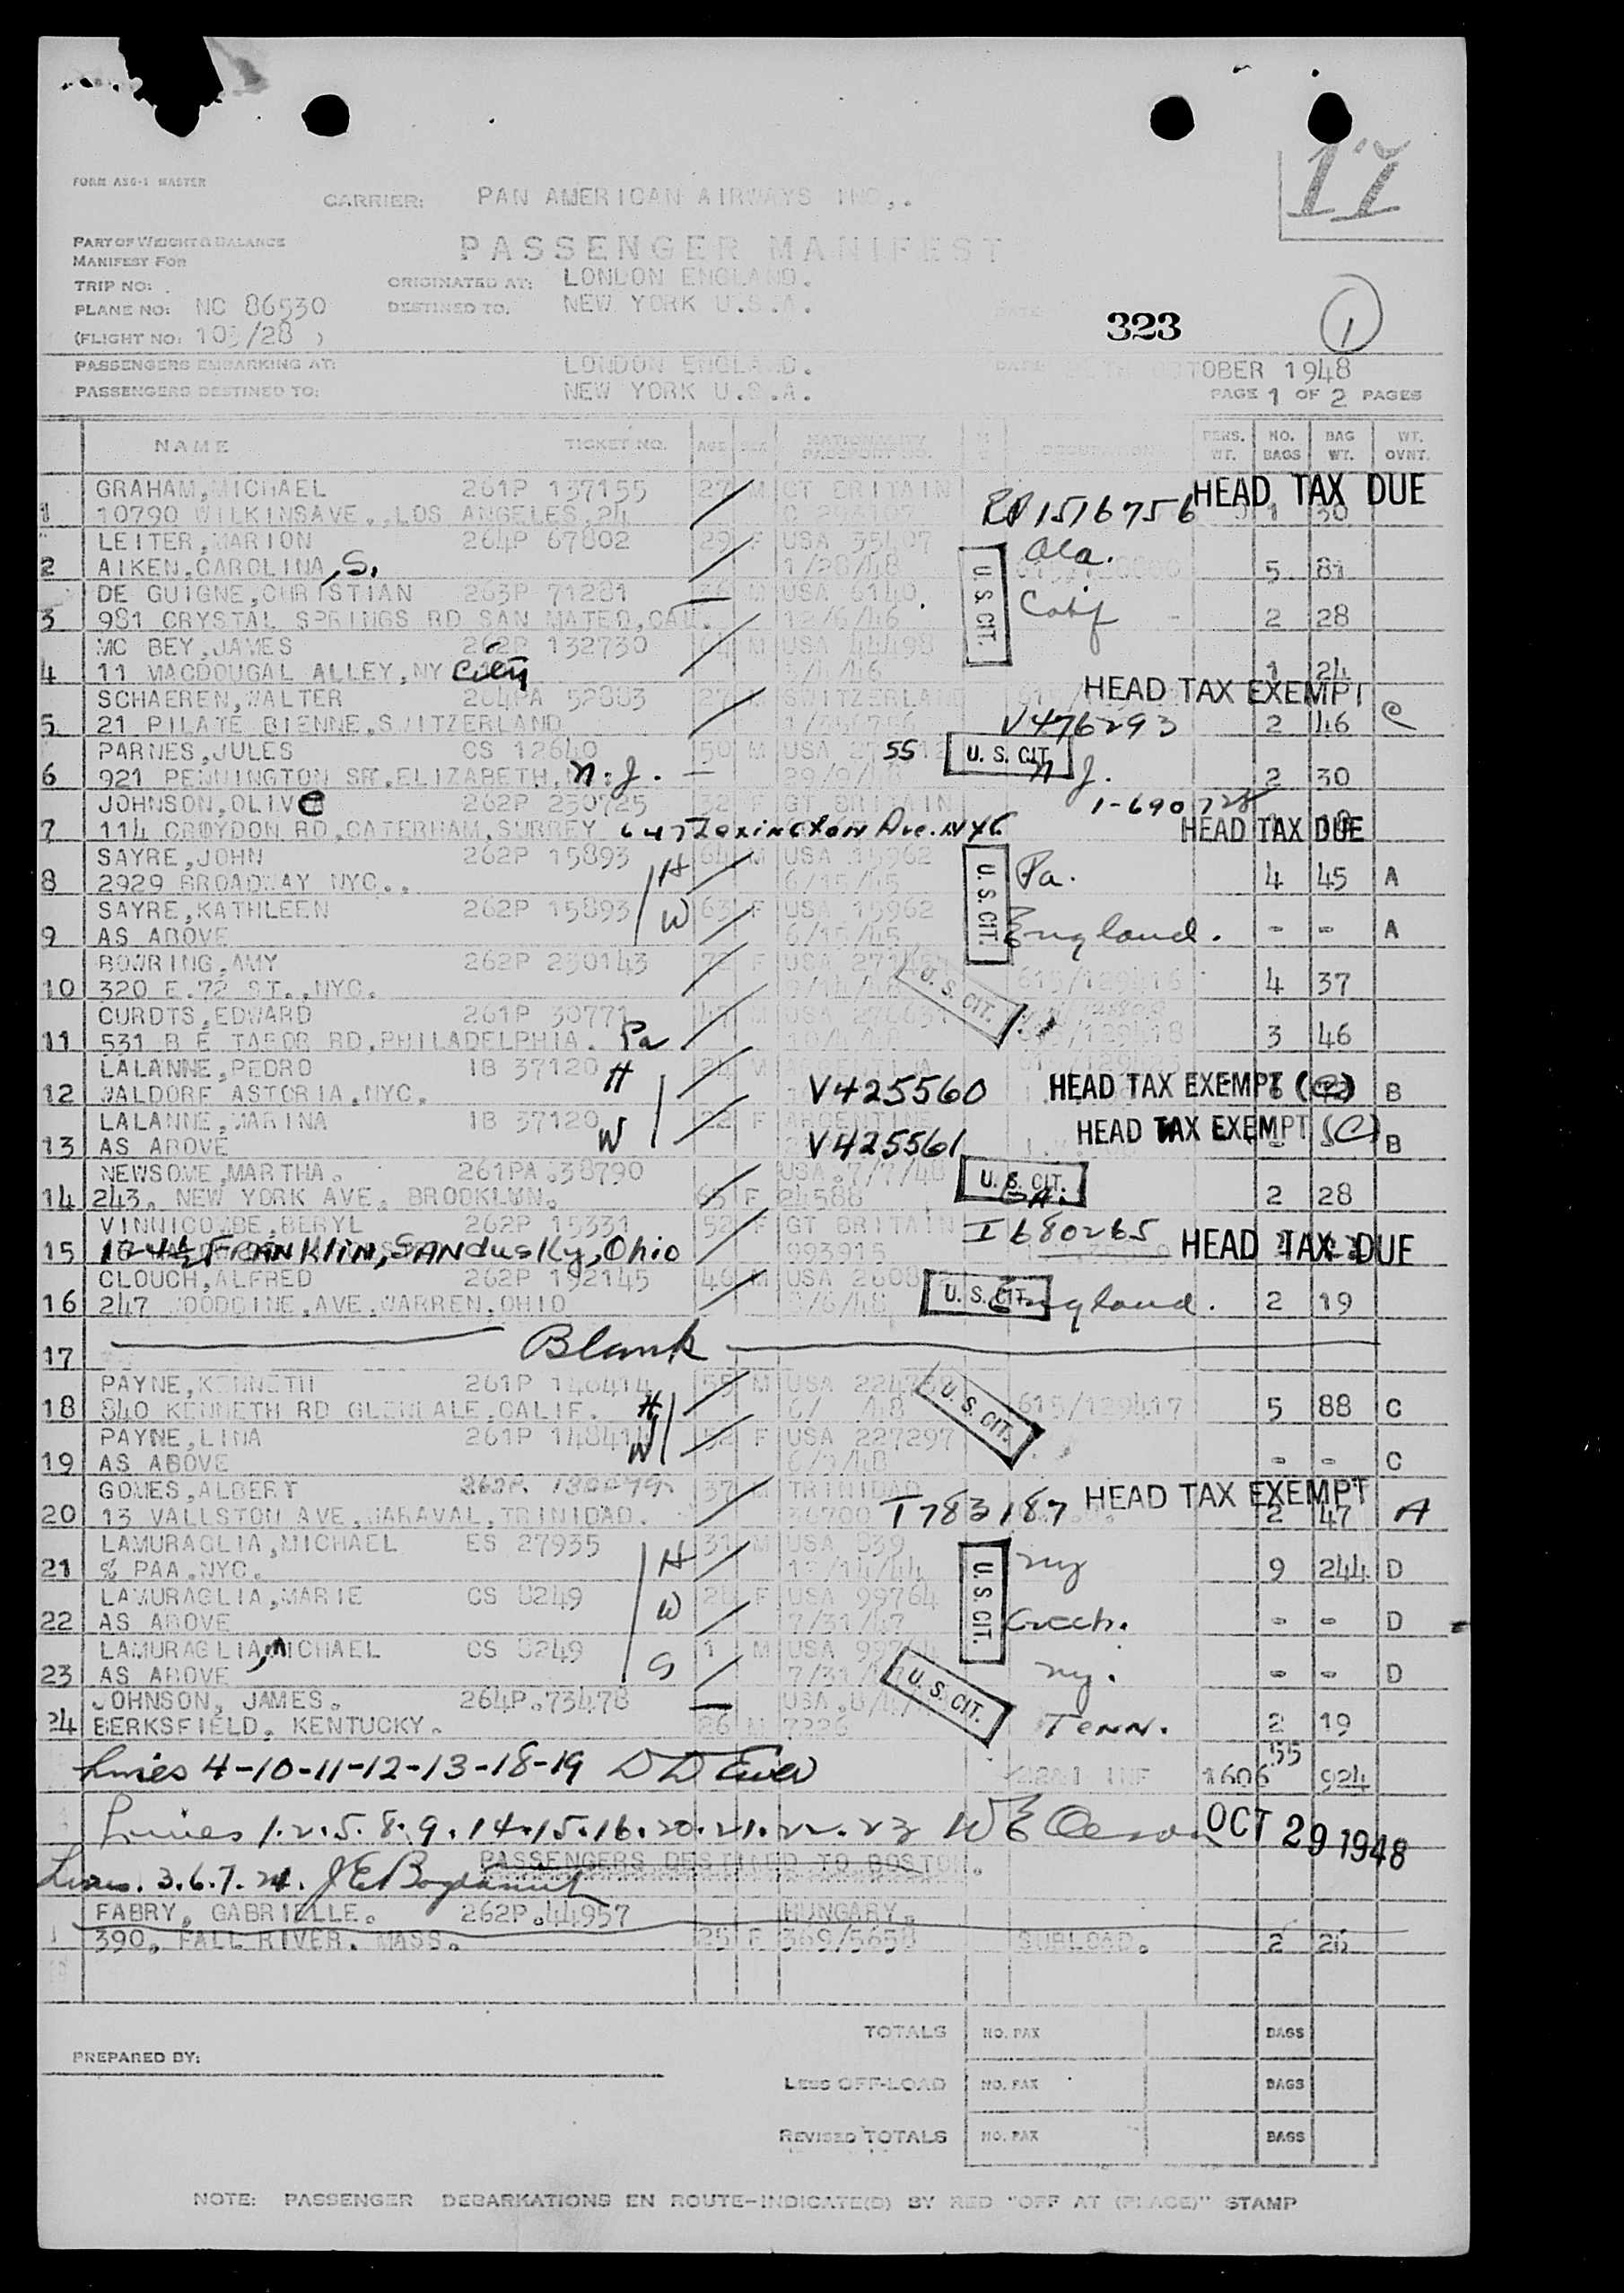 17
FORM ASG-1 MASTER
CARRIER: PAN AMERICAN AIRWAYS INC,.
PART OF WEIGHT & BALANCE
MANIFEST FOR
PASSENGER MANIFEST
TRIP NO: .
ORIGINATED AT: LONDON ENGLAND.
PLANE NO: NC 86530
DESTINED TO. NEW YORK U.S.A.
DATE
323
1
(FLIGHT NO: 103/28 )
PASSENGERS EMBARKING AT: LONDON ENGLAND. DATE OCTOBER 1948
PASSENGERS DESTINED TO: NEW YORK U.S.A. PAGE 1 OF 2 PAGES
NAME TICKET NO. AGE SEX NATIONALITY PASSPORT NO. OCCUPATION PERS. WT. NO. BAGS BAG WT. WT. OVNT.
GRAHAM,MICHAEL 261P 137155 27 M GT BRITAIN HEAD TAX DUE
1 10790 WILKINSAVE.,LOS ANGELES,24 1516756 1 30
LEITER,MARION 264P 67802 29 F USA 35407 Ala.
2 AIKEN,CAROLINA,S. 1/20/48 U.S. CIT. 5 81
DE GUIGNE,CHRISTIAN 263P 71281 M USA 6140 Calif
3 981 CRYSTAL SPRINGS RD SAN MATEO,CAL. /6/46 2 28
MC BEY,JAMES 262P 132730 64 M USA 44498
4 11 MACDOUGAL ALLEY,NY City /46 1 24
SCHAEREN,WALTER 264PA 52883 27 SWITZERLAND HEAD TAX EXEMPT
5 21 PILATE BIENNE,SWITZERLAND V476293 2 46 C
PARNES,JULES CS 12640 50 M USA 55 U. S. CIT.
6 921 PENNINGTON ST.ELIZABETH,N.J. 29/9/ N J. 2 30
JOHNSON,OLIVE 262P 230725 32 F GT BRITAIN 1-690723
7 114 CROYDON RD,CATERHAM,SURREY 647 Lexington Ave. NYC HEAD TAX DUE 18
SAYRE,JOHN 262P 15893 H 64 M USA 15962 U.S. CIT. Pa.
8 2929 BROADWAY NYC.. 6/15/45 4 45 A
SAYRE,KATHLEEN 262P 15893 W 63 F USA 15962
9 AS ABOVE 6/15/45 England. - - A
BOWRING,AMY 262P 230143 72 F USA 615/129416
10 320 E.72 ST.,NYC. U. S. CIT. 4 37
CURDTS,EDWARD 261P 30771 M USA 129418
11 531 B E TABOR RD.PHILADELPHIA. Pa 3 46
LALANNE,PEDRO IB 37120 H 24 M
12 WALDORF ASTORIA,NYC. V425560 HEAD TAX EXEMPT (C) B
LALANNE,MARINA IB 37120 W 22 F ARGENTINE
13 AS ABOVE V425561 HEAD TAX EXEMPT (C) B
NEWSOME,MARTHA. 261PA.38790 USA.7/7/48 U. S. CIT.
14 243. NEW YORK AVE. BROOKLYN. 65 F 24588 GA. 2 28
VINNICOMBE,BERYL 262P 15331 52 F GT BRITAIN I680265 HEAD TAX DUE
15 Franklin, Sandusky, Ohio 993915
CLOUCH,ALFRED 262P 192145 46 M USA U. S. CIT.
16 247 WOODBINE,AVE.WARREN,OHIO /6/48 England. 2 19
17 Blank
PAYNE,KENNETH 261P 55 M USA U. S. CIT. 615/129417
18 840 KENNETH RD GLENDALE,CALIF. H 6/ /48 5 88 C
PAYNE,LINA 261P W 52 F USA 227297
19 AS ABOVE 6/ /48 - - C
GOMES,ALBERT 262P. 37 M TRINIDAD HEAD TAX EXEMPT
20 13 VALLSTON AVE,MARAVAL,TRINIDAD. 36700 T783187 2 47 A
LAMURAGLIA,MICHAEL ES 27935 H 31 M USA 839 U.S. CIT. NY
21 % PAA.NYC. /14/44 9 244 D
LAMURAGLIA,MARIE CS 8249 W 28 F USA 99764
22 AS ABOVE 7/31/47 Czech. - - D
LAMURAGLIA,MICHAEL CS 8249 S 1 M USA 99764
23 AS ABOVE 7/31/47 U. S. CIT. NY. - - D
JOHNSON, JAMES. 264P.73478 USA.
24 BERKSFIELD. KENTUCKY. 26 M 7226 Tenn. 2 19
Lines 4-10-11-12-13-18-19 1606 55 924
Lines 1.2.5.8.9.14.15.16.20.21.22.23 OCT 29 1948
PASSENGERS DESTINED TO BOSTON.
Lines. 3.6.7.24.
FABRY, GABRIELLE. 262P.44957 HUNGARY.
1 390, FALL RIVER. MASS. 25 F 369/5658 SUBLOAD. 2 26
TOTALS NO. PAX BAGS
PREPARED BY:
LESS OFF-LOAD NO. PAX BAGS
REVISED TOTALS NO. PAX BAGS
NOTE: PASSENGER DEBARKATIONS EN ROUTE-INDICATE(D) BY RED "OFF AT (PLACE)" STAMP